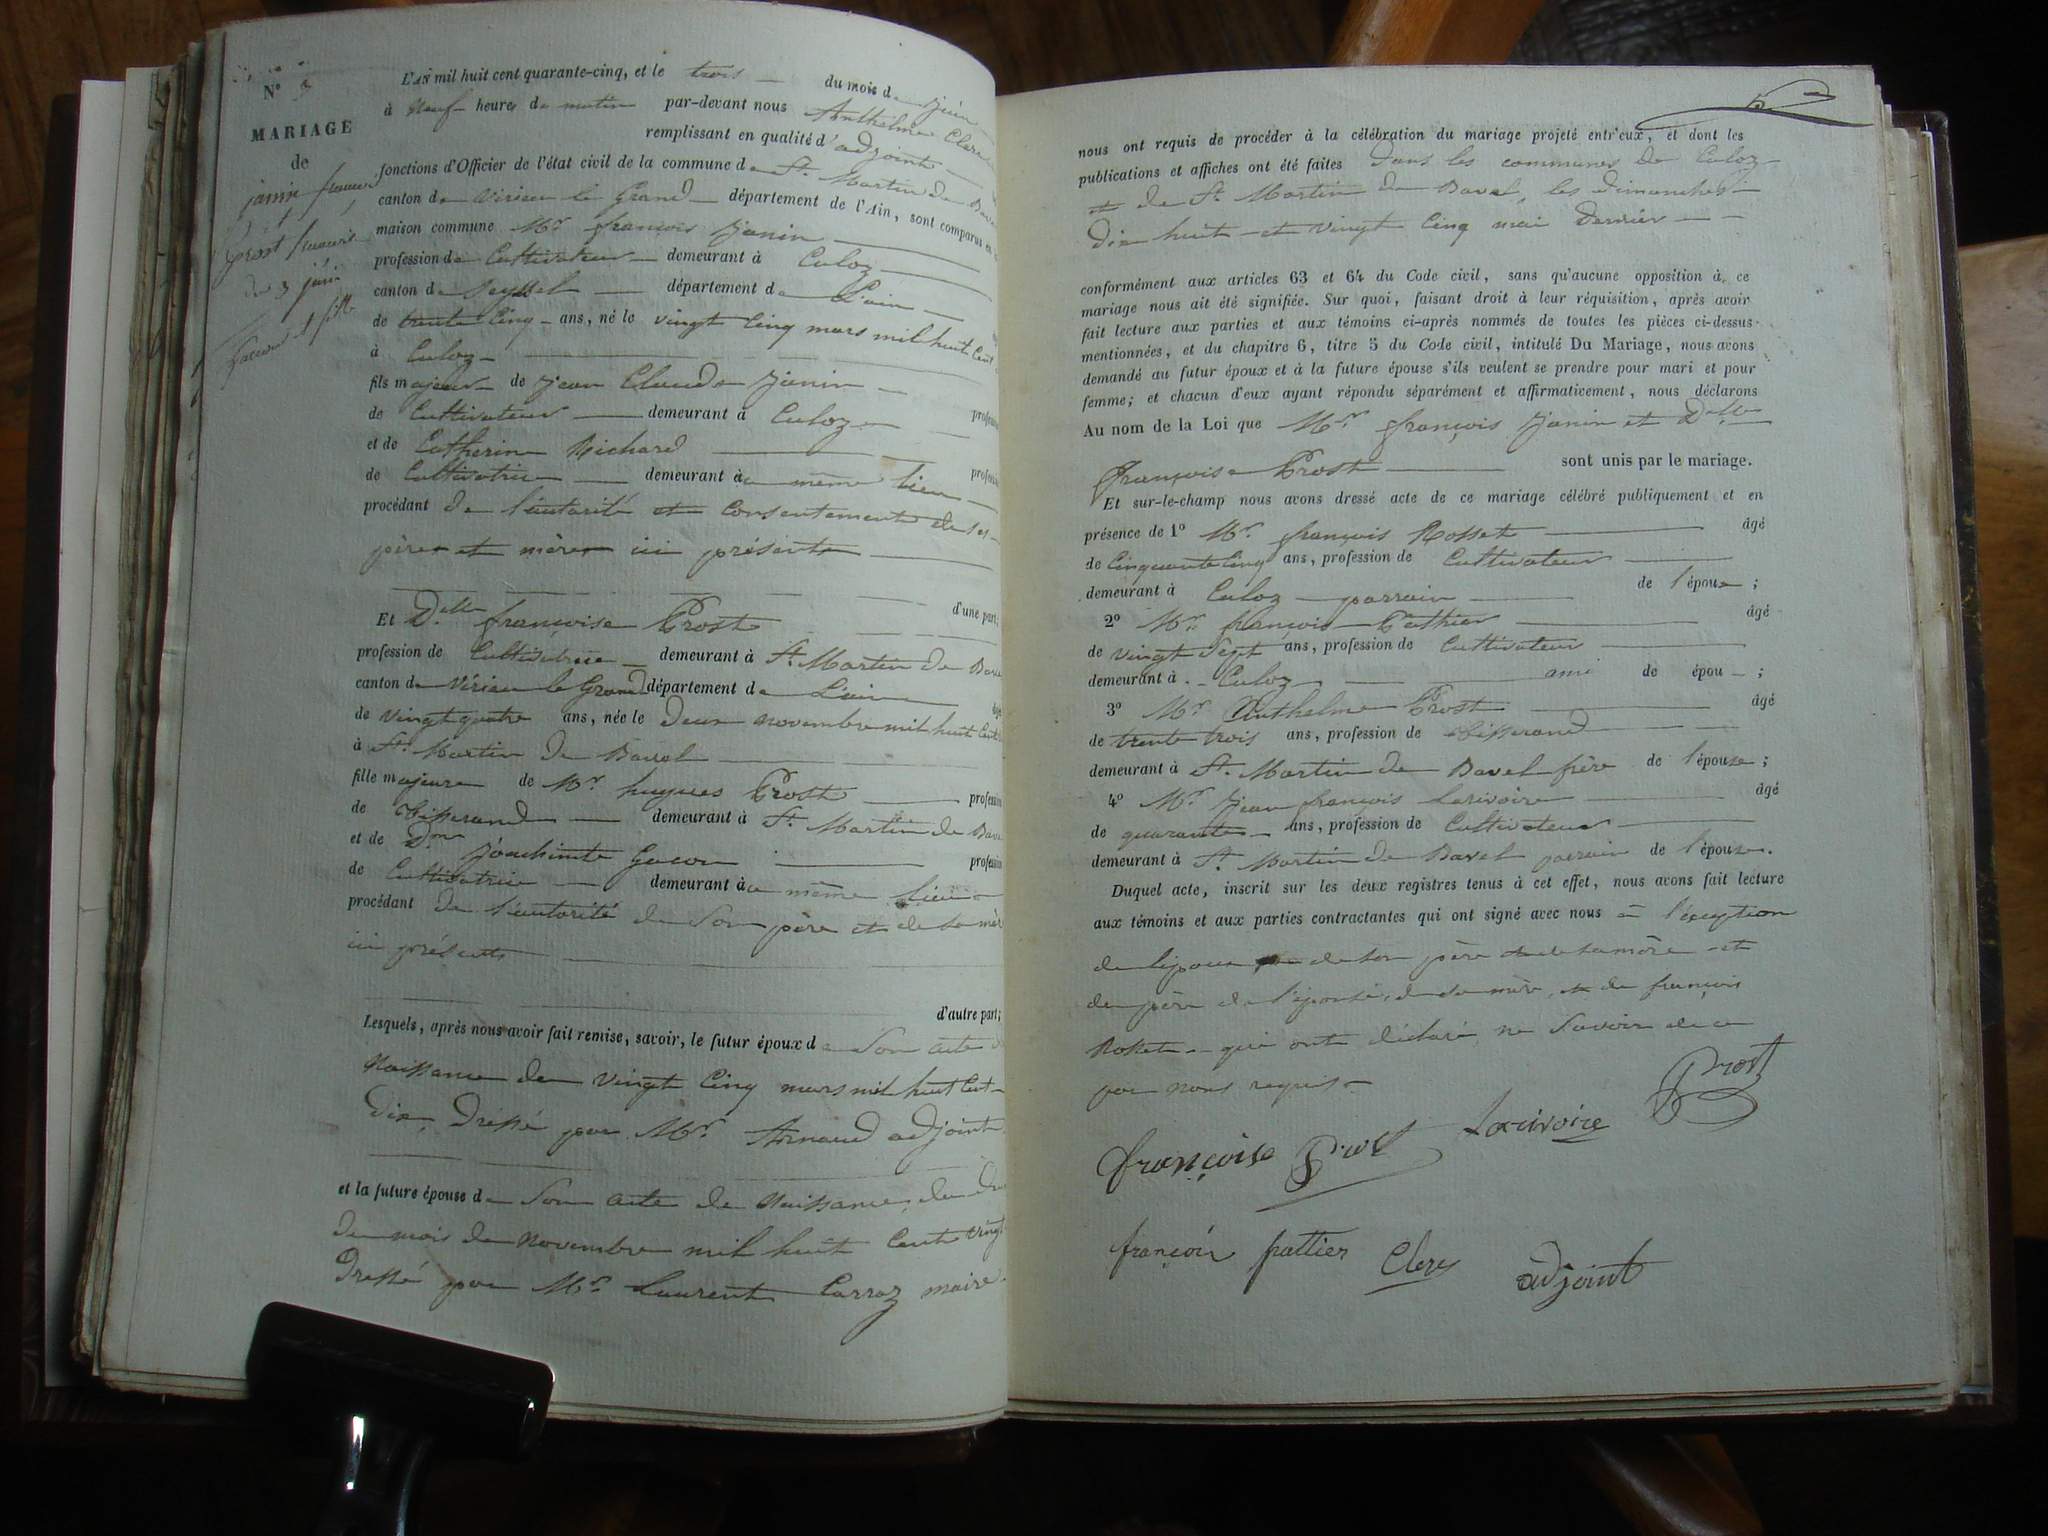 N° 3
MARIAGE
de
janin françois
et
prost françoise
du 3 juin
L'AN mil huit cent quarante-cinq, et le trois du mois de juin
à neuf heures du matin par-devant nous Anthelme Clerc
remplissant en qualité d'adjoint
fonctions d'Officier de l'état civil de la commune de St Martin de Bavel
canton de Virieu le Grand département de l'Ain, sont comparus en
maison commune Mr françois Janin
profession de Cultivateur demeurant à Culoz
canton de Seyssel département de L'ain
de trente Cinq ans, né le vingt Cinq mars mil huit Cent
à Culoz
fils majeur de Jean Claude Janin profession
de Cultivateur demeurant à Culoz
et de Catherine Richard profession
de Cultivatrice demeurant au même lieu
procédant de l'autorité et Consentement de ses
père et mère ici présents
d'une part;
Et Dlle françoise Prost
profession de Cultivatrice demeurant à St Martin de Bavel
canton de Virieu le Grand département de L'ain âgé
de vingt quatre ans, née le deux novembre mil huit Cent
à St Martin de Bavel
fille majeure de Mr hugues Prost profession
de Tisserand demeurant à St Martin de Bavel
et de Dme Joachinte Gacon profession
de Cultivatrice demeurant au même lieu
procédant de l'autorité de Son père et de Sa mère
ici présents
d'autre part;
Lesquels, après nous avoir fait remise, savoir, le futur époux de Son acte de
Naissance du vingt Cinq mars mil huit Cent
dix, Dréssé par Mr Arnaud adjoint
et la future épouse de Son acte de Naissance, du deux
du mois de novembre mil huit Cent vingt
Dressé par Mr Laurent Carraz maire
nous ont requis de procéder à la célébration du mariage projeté entr'eux, et dont les
publications et affiches ont été faites dans les communes de Culoz
et de St Martin de Bavel, les dimanches
dix huit et vingt Cinq mai dernier
conformément aux articles 63 et 64 du Code civil, sans qu'aucune opposition à ce
mariage nous ait été signifiée. Sur quoi, faisant droit à leur réquisition, après avoir
fait lecture aux parties et aux témoins ci-après nommés de toutes les pièces ci-dessus
mentionnées, et du chapitre 6, titre 5 du Code civil, intitulé Du Mariage, nous avons
demandé au futur époux et à la future épouse s'ils veulent se prendre pour mari et pour
femme; et chacun d'eux ayant répondu séparément et affirmativement, nous déclarons
Au nom de la Loi que Mr françois Janin et Dlle
françoise Prost sont unis par le mariage.
Et sur-le-champ nous avons dressé acte de ce mariage célébré publiquement et en
présence de 1° Mr françois Rosset âgé
de Cinquante Cinq ans, profession de Cultivateur
demeurant à Culoz parrain de l'époux;
2° Mr françois Pathier âgé
de vingt Sept ans, profession de Cultivateur
demeurant à Culoz ami de épou;
3° Mr Anthelme Prost âgé
de trente trois ans, profession de Tisserand
demeurant à St Martin de Bavel frère de l'épouse;
4° Mr Jean françois Larivoire âgé
de quarante ans, profession de Cultivateur
demeurant à St Martin de Bavel parrain de l'épouse.
Duquel acte, inscrit sur les deux registres tenus à cet effet, nous avons fait lecture
aux témoins et aux parties contractantes qui ont signé avec nous à l'éxception
de l'époux de Son père de Sa mère et
du père de l'épouse, de Sa mère, et de françois
Rosset qui ont déclaré ne Savoir de ce
par nous requis
Prost
françoise Prost Larivoire
françois pattier Clerc adjoint